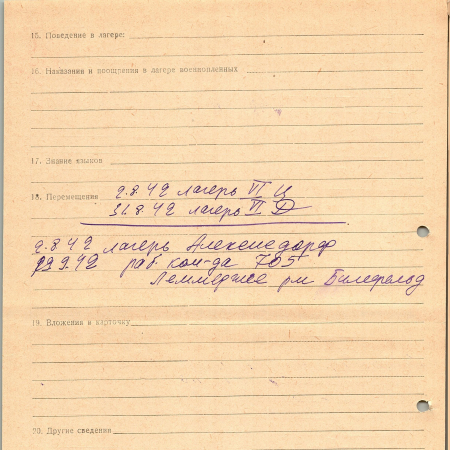 15. Поведение в лагере:
16. Наказания и поощрения в лагере военнопленных
17. Знание языков
18. Перемещения 2.8.42 лагерь VI Ц
31.8.42 лагерь VI Д
2.8.42 лагерь Алексисдорф
29.9.42 раб. ком-да 705
Леммерсхее рн Билефельд
19. Вложения в карточку
20. Другие сведения